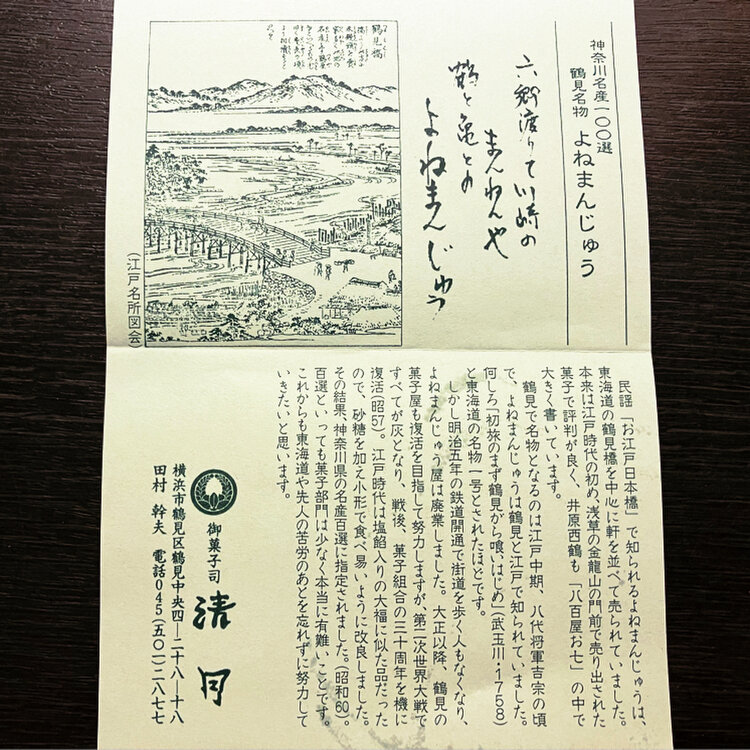 神奈川名産一〇〇選
鶴見名物 よねまんじゅう
六郷渡りて川崎の
まんねんや
鶴と亀との
よねまんじゅう
鶴見橋
(江戸名所図会)
民謡「お江戸日本橋」で知られるよねまんじゅうは、
東海道の鶴見橋を中心に軒を並べて売られていました。
本来は江戸時代の初め、浅草の金龍山の門前で売り出された
菓子で評判が良く、井原西鶴も「八百屋お七」の中で
大きく書いています。
鶴見で名物となるのは江戸中期、八代将軍吉宗の頃
で、よねまんじゅうは鶴見と江戸で知られていました。
何しろ「初旅のまず鶴見から喰いはじめ」(武玉川・1758)
と東海道の名物一号とされたほどです。
しかし明治五年の鉄道開通で街道を歩く人もなくなり、
よねまんじゅう屋は廃業しました。大正以降、鶴見の
菓子屋も復活を目指して努力しますが、第二次世界大戦で
すべてが灰となり、戦後、菓子組合の三十周年を機に
復活(昭57)。江戸時代は塩餡入りの大福に似た品だった
ので、砂糖を加え小形で食べ易いように改良しました。
その結果、神奈川県の名産百選に指定されました。(昭和60)。
百選といっても菓子部門は少なく本当に有難いことです。
これからも東海道や先人の苦労のあとを忘れずに努力して
いきたいと思います。
御菓子司 清月
横浜市鶴見区鶴見中央四―二十八―十八
田村 幹夫 電話045(五〇一)二八七七